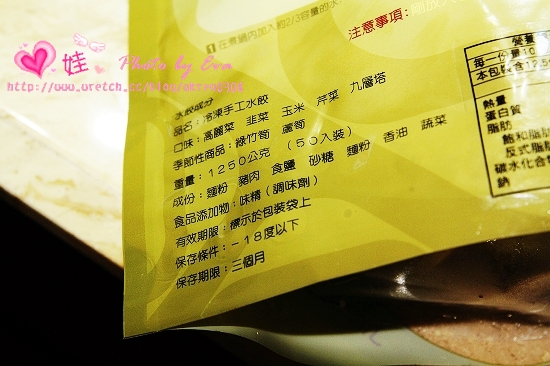 1 在煮鍋內加入約2/3容量的水
注意事項:
娃 Photo by Eva
水餃成分
品名:冷凍手工水餃
口味:高麗菜 韭菜 玉米 芹菜 九層塔
季節性商品:綠竹筍 蘆筍
重量:1250公克(50入裝)
成份:麵粉 豬肉 食鹽 砂糖 麵粉 香油 蔬菜
食品添加物:味精(調味劑)
有效期限:標示於包裝袋上
保存條件:-18度以下
保存期限:三個月
營養
每一份量10
本包裝含12.5
熱量
蛋白質
脂肪
飽和脂肪
反式脂肪
碳水化合
鈉